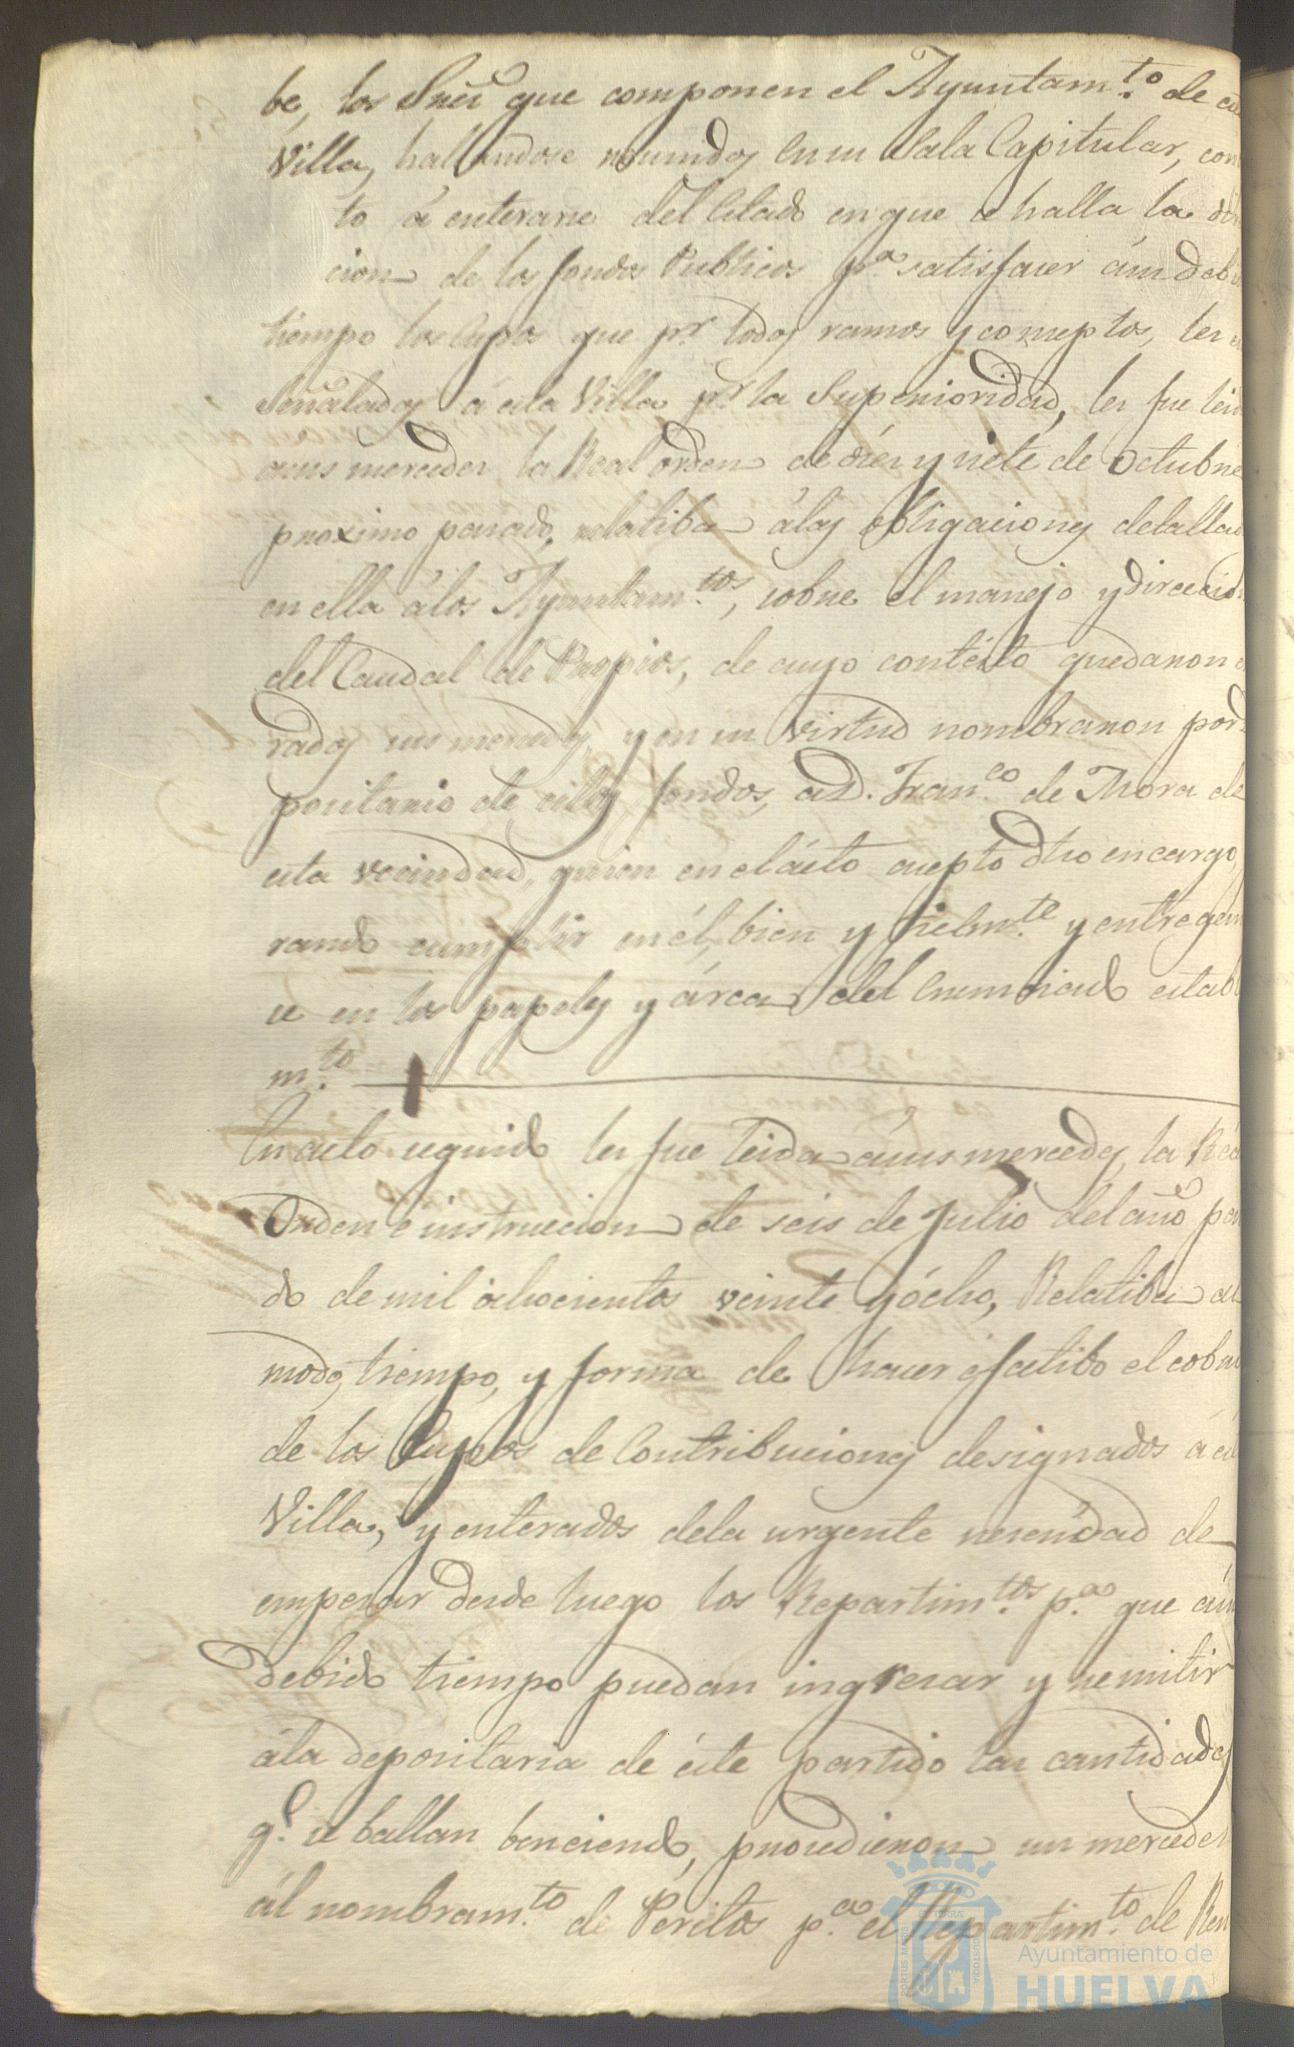 be, los Sres que componen el Ayuntam.to de
Villa, hallandose reunidos en su Sala Capitular, con
to á enterarse del estado en que se halla la
cion de los fondos Publicos p.a satisfacer á su deb
tiempo los cupos que pr. todos ramos y conceptos, les
señalados á esta Villa pr. la Superioridad, les fue leid
a sus mercedes la Real orden de diez y siete de Octubre
proximo pasado, relatiba á las obligaciones detallad
en ella á los Ayuntam.tos, sobre el manejo y direccio
del Caudal de Propios, de cuyo contésto quedaron
rados sus mercedes, y en su virtud nombraron por
positario de esttos fondos, a D. Fran.co de Mora de
esta vecindad, quien en el ácto acepto dho encargo,
rando cumplir en él, bien y fielm.te y entregen
se en los papeles y árcas del enunciado establ
m.to
En acto seguido les fue leida á sus mercedes, la Rea
Orden é instruccion de seis de Julio del año pa
do de mil ochocientos veinte y ócho, Relatiba al
modo, tiempo, y forma de hacer efectibo el cobr
de los Cupos de Contribuciones designados á
Villa, y enterados de la urgente necesidad de
empesar desde luego los Repartim.tos p.a que á su
debido tiempo puedan ingresar y remitir
á la depositaria de éste partido las cantidades
q.e se hallan benciendo, procedieron sus mercedes
ál nombram.to de Peritos p.a el Repartim.to de Ren
Ayuntamiento de
HUELVA